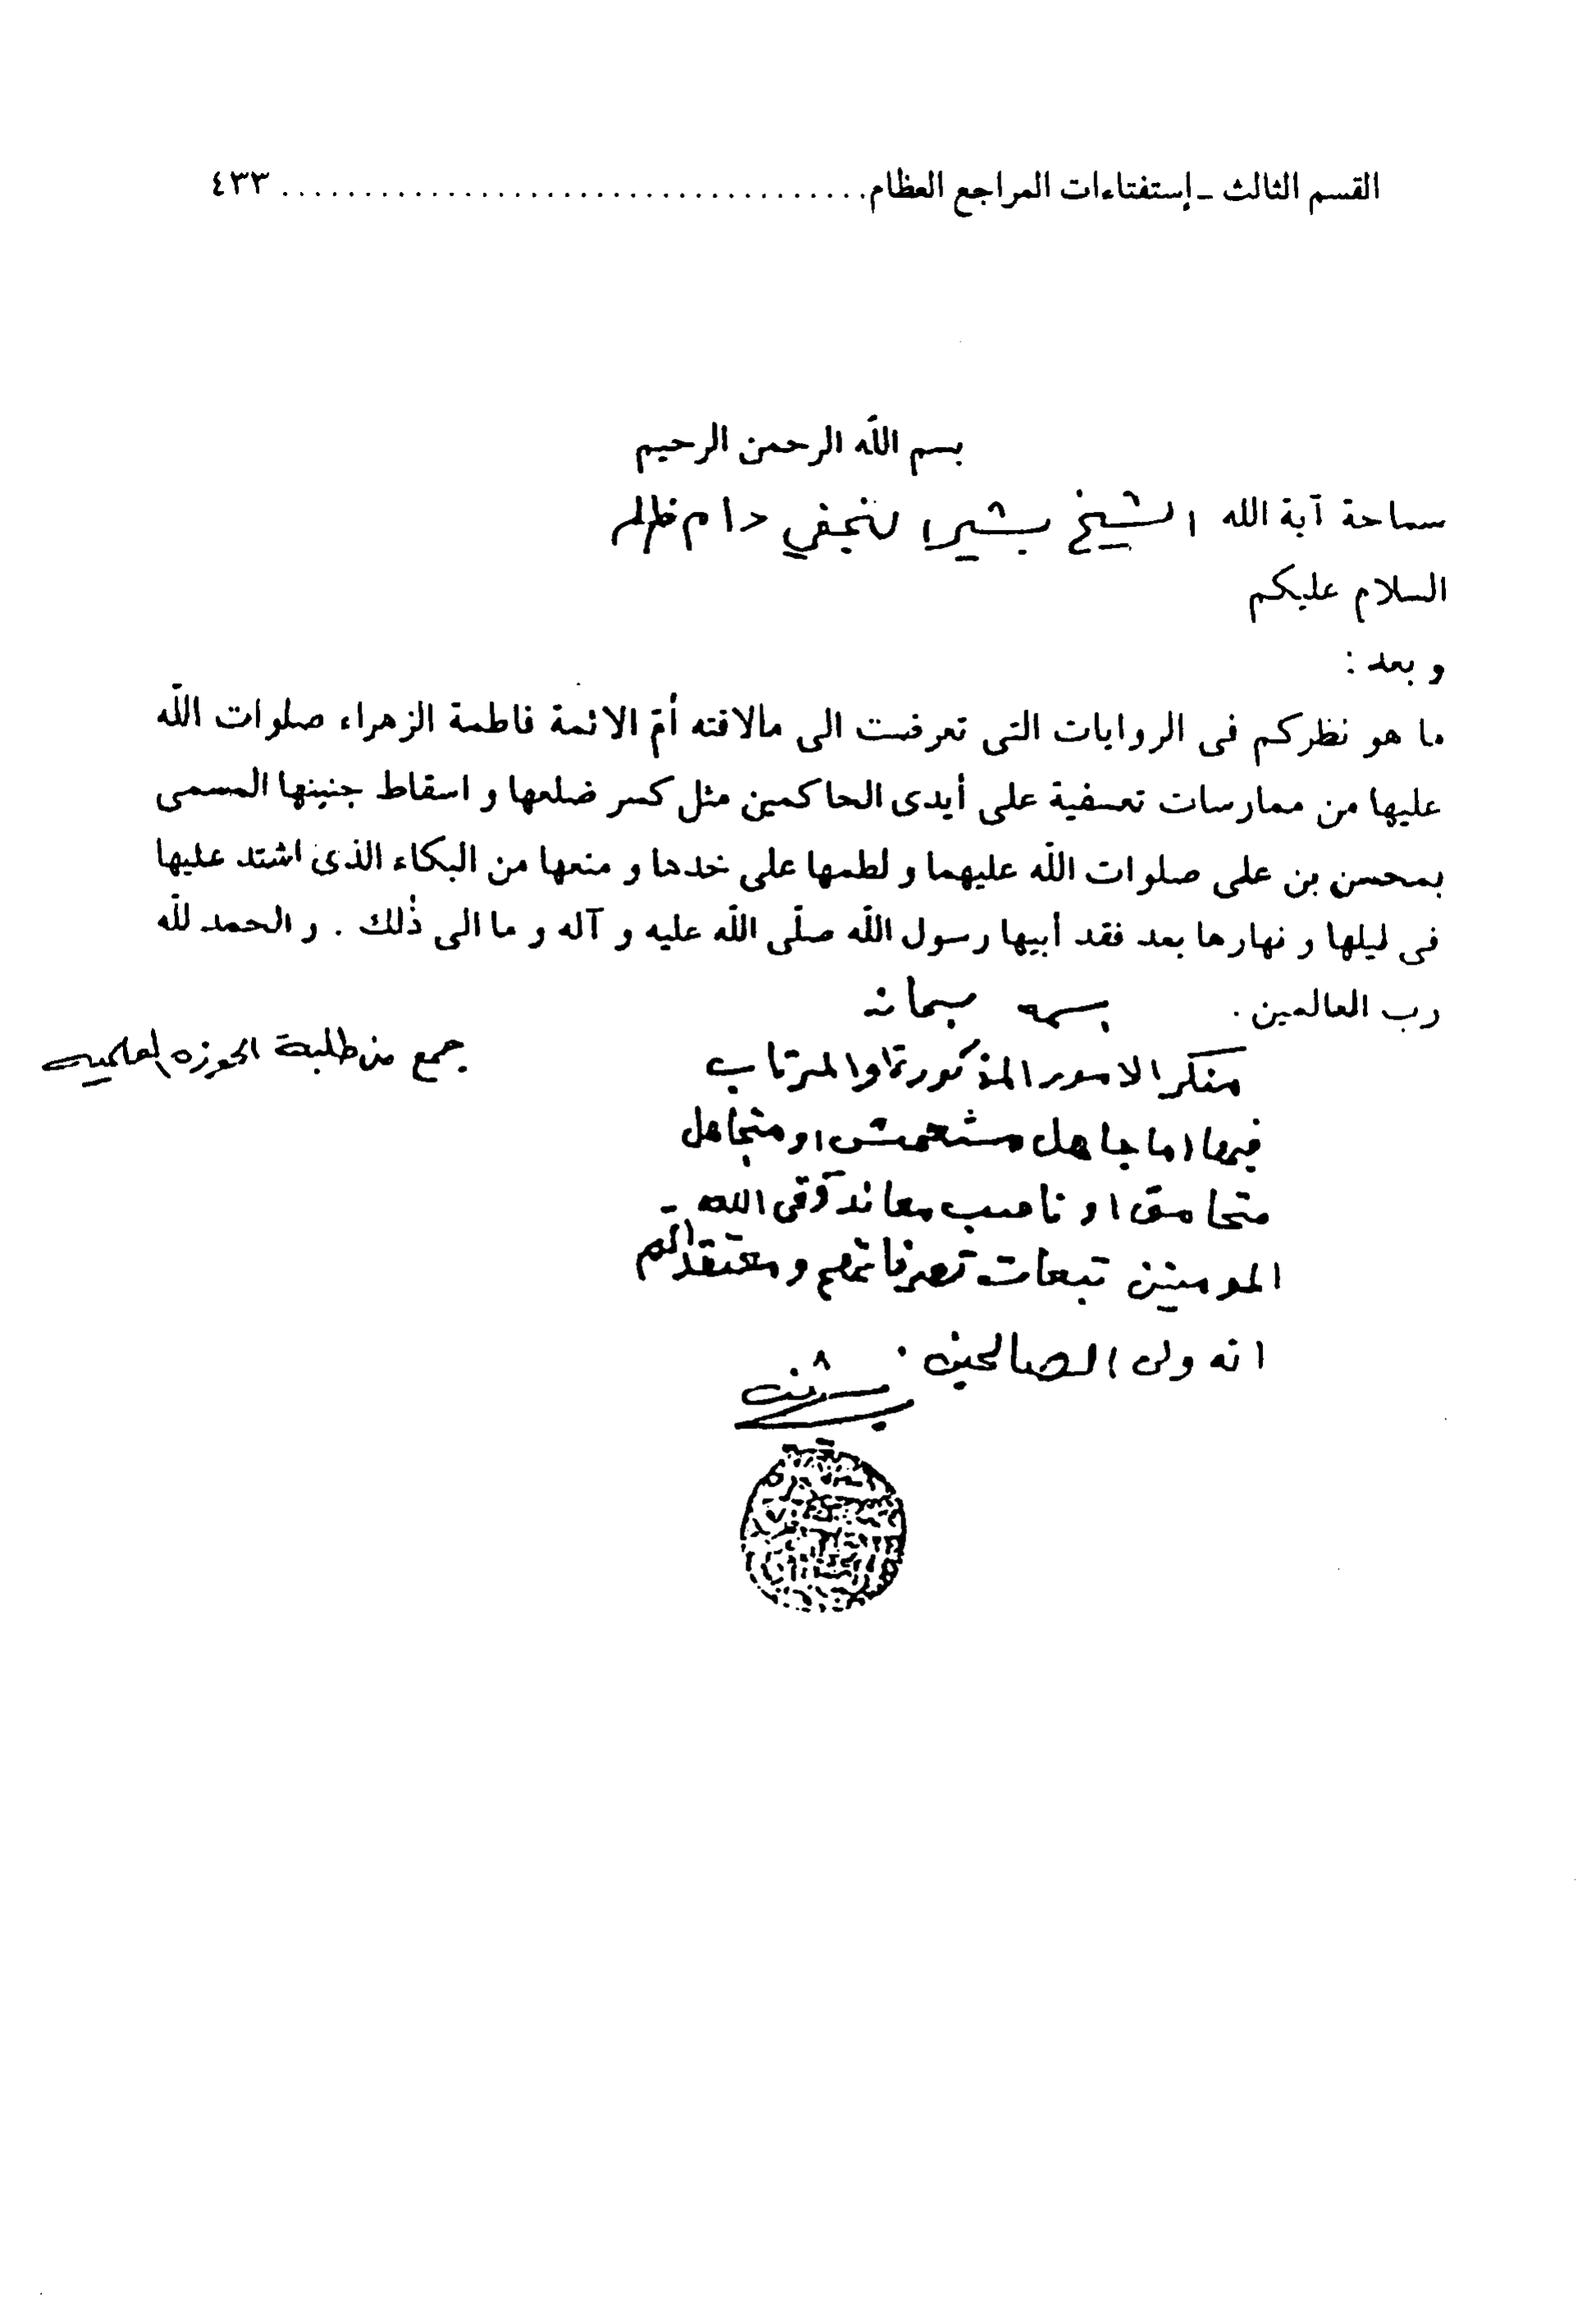 القسم الثالث ـ إستفتاءات المراجع العظام ................................. ٤٣٣
بسم الله الرحمن الرحيم
سماحة آية الله الشيخ بشير النجفي دام ظله
السلام عليكم
و بعد :
ما هو نظركم فى الروايات التى تعرضت الى مالاقته أمّ الائمة فاطمة الزهراء صلوات الله
عليها من ممارسات تعسفية على أيدى الحاكمين مثل كسر ضلعها و اسقاط جنينها المسمى
بمحسن بن على صلوات الله عليهما و لطمها على خدها و منعها من البكاء الذى اشتد عليها
فى ليلها و نهارها بعد فقد أبيها رسول الله صلّى الله عليه و آله و ما الى ذٰلك . و الحمد لله
رب العالمين .
جمع من طلبة الحوزه العلميه
بسمه سبحانه
منكر الامور المذكورة او المرتاب
فيها اما جاهل او متجاهل
متحامق او ناصب معاند وقى الله
المومنين تبعات تصرفاتهم ومعتقداتهم
انه ولى الصالحين .